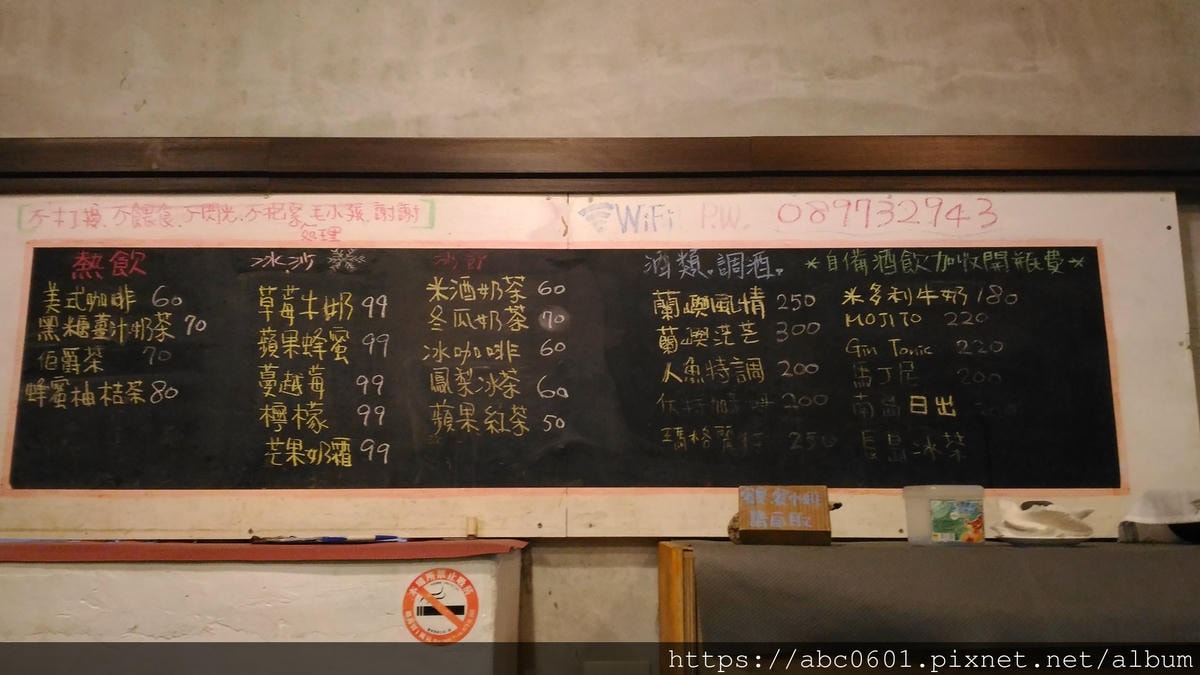 不打擾、不餵食、不閃光、不抱家毛小孩,謝謝
處理
WiFi P.W. 089732943
熱飲
美式咖啡 60
黑糖薑汁奶茶 70
伯爵茶 70
蜂蜜柚桔茶 80
冰沙
草莓牛奶 99
蘋果蜂蜜 99
蔓越莓 99
檸檬 99
芒果奶霜 99
冰飲
米酒奶茶 60
冬瓜奶茶 70
冰咖啡 60
鳳梨冰茶 60
蘋果紅茶 50
酒類。調酒。
蘭嶼風情 250
蘭嶼茫茫 300
人魚特調 200
伏特加 200
瑪格麗特 250
*自備酒飲加收開瓶費*
米多利牛奶 180
MOJITO 220
Gin Tonic 220
馬丁尼 200
南島日出 200
長島冰茶
請自取
本場所禁止吸菸
https://abc0601.pixnet.net/album